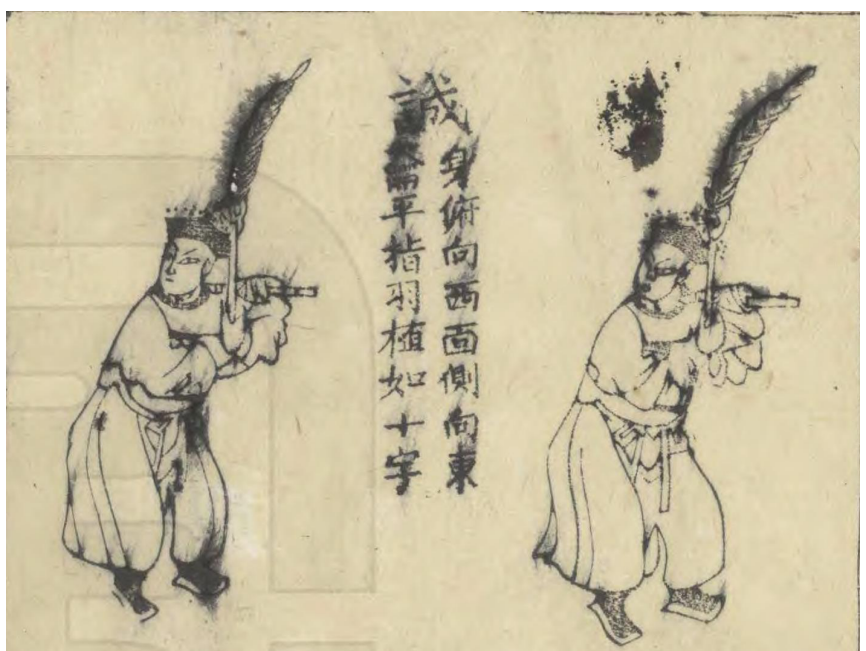 誠
身俯向西面側向東
籥平指羽植如十字